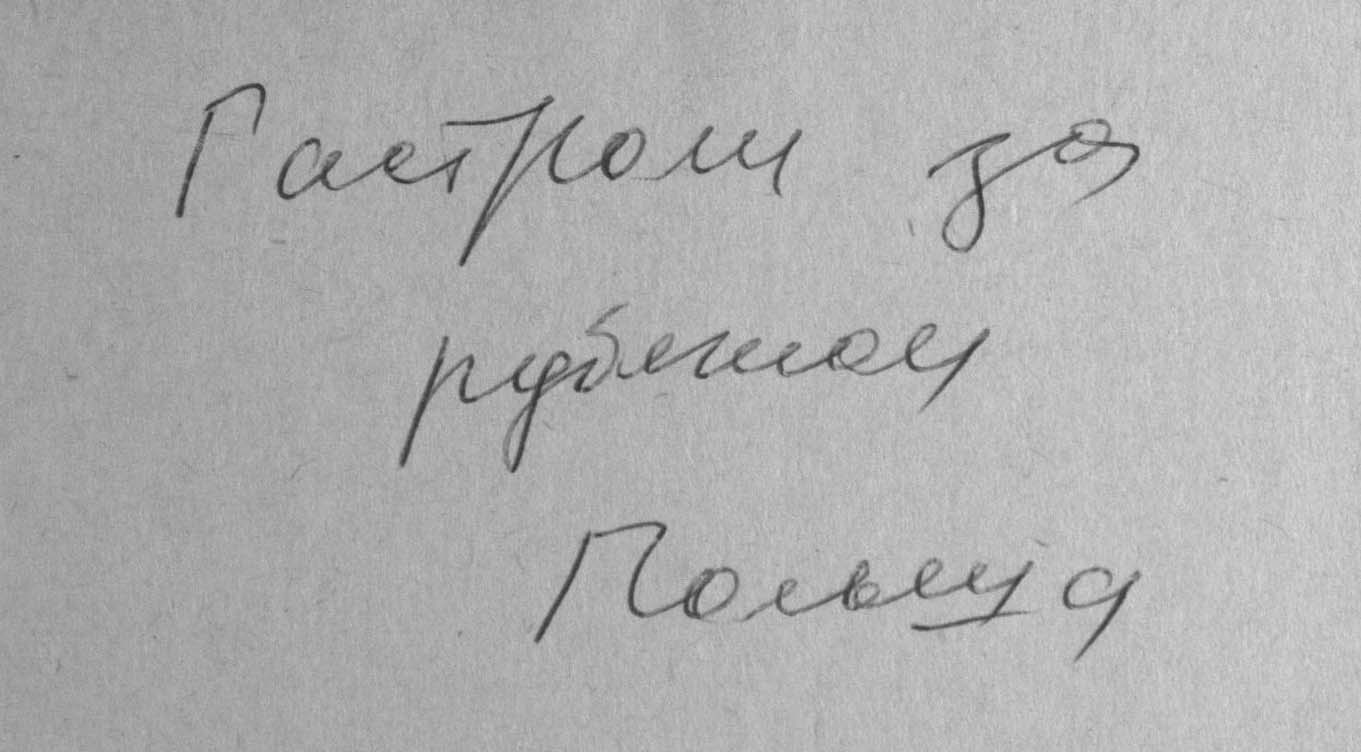 Гастроли за
рубежом
Польша